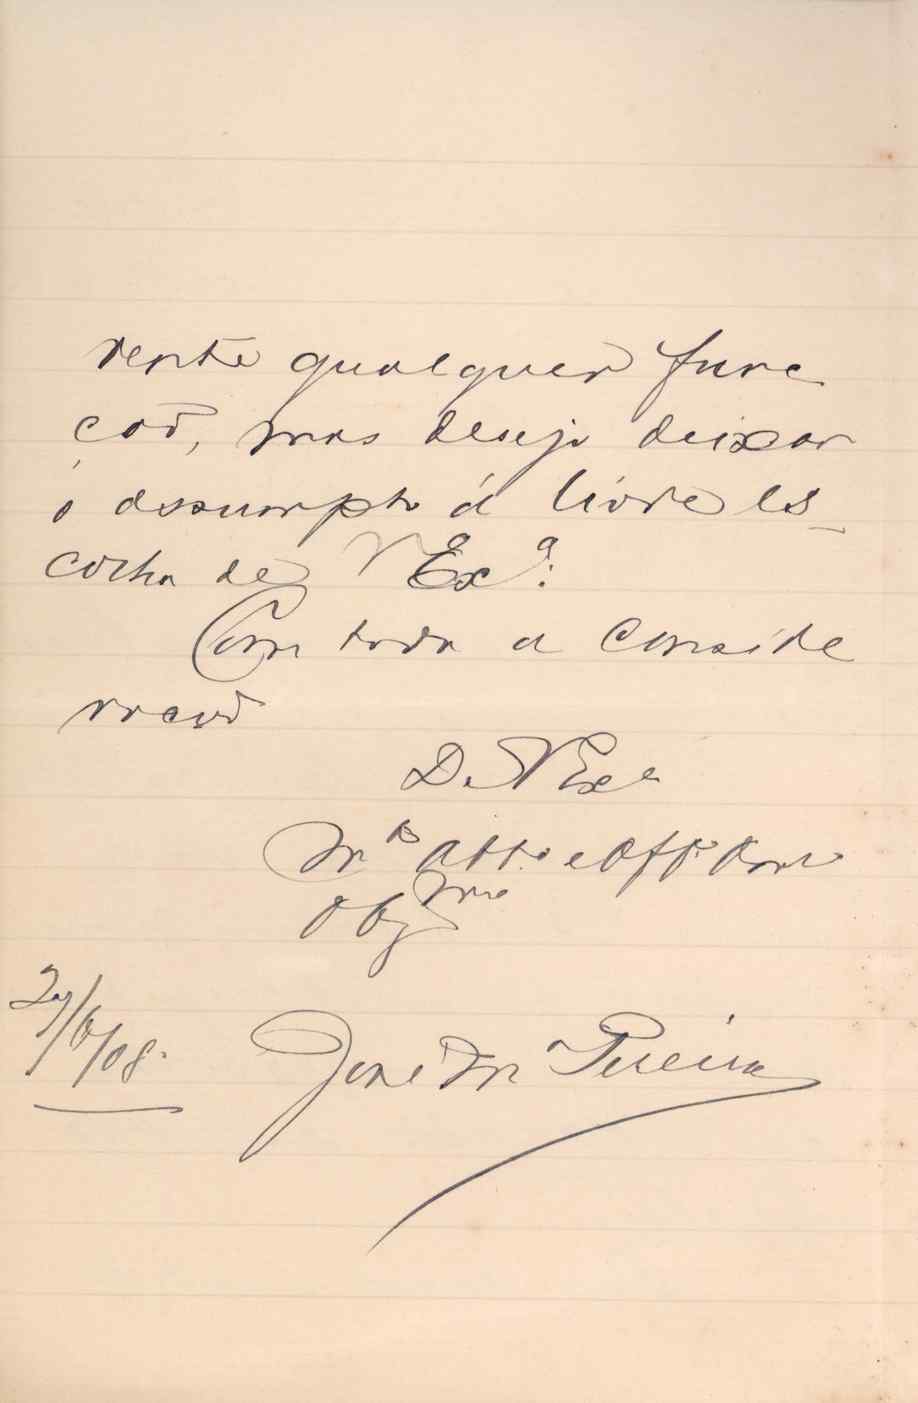 vente qualquer func
ção, mas desejo deixar
o assumpto á livre es
colha de V Exª:
Com toda a conside
ração
De V Exª
M.to Att.o e
Obg.mo
27/6/08.
José M Pereira